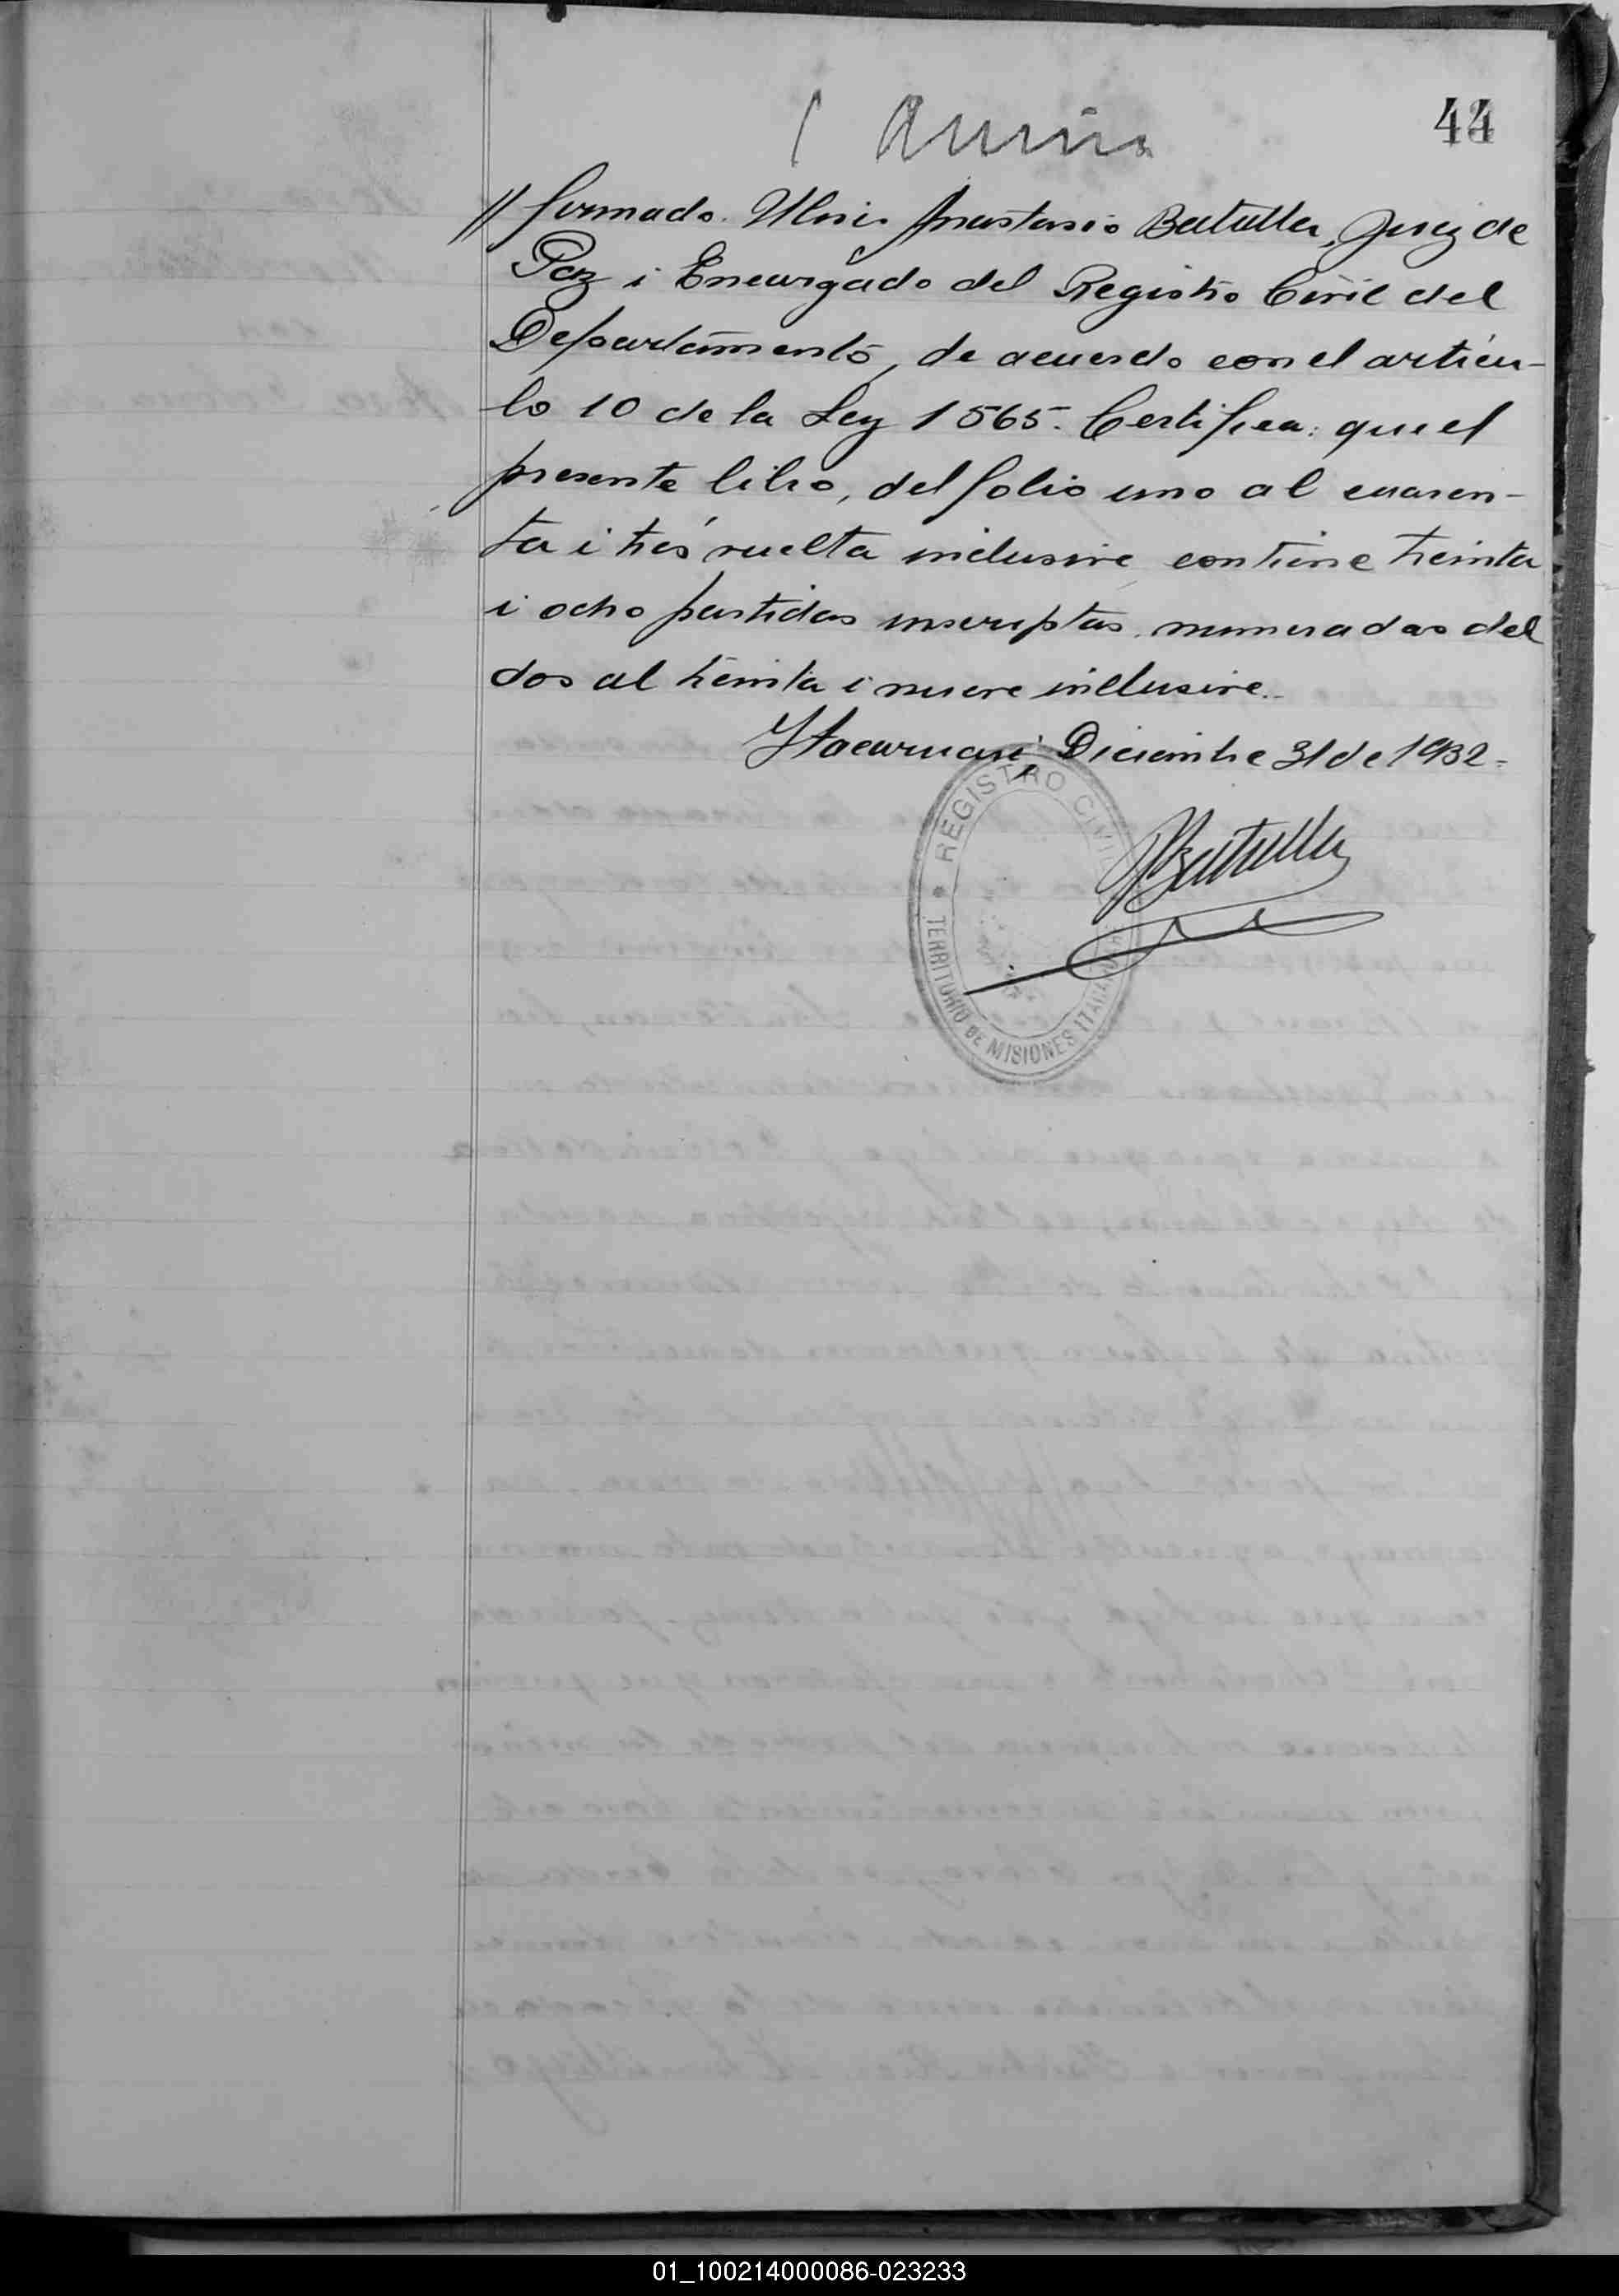 44
// formado. Ulises Anastasio Batalla, Juez de
Paz i Encargado del Registro Civil del
Departamento, de acuerdo con el artícu-
lo 10 de la Ley 1565. Certifica: que el
presente libro, del folio uno al cuaren-
ta i tres vuelta inclusive contiene treinta
i ocho partidas inscriptas numeradas del
dos al treinta i nueve inclusive.
Itacaruaré Diciembre 31 de 1932.-
REGISTRO CIVIL
TERRITORIO DE MISIONES
01_100214000086-023233